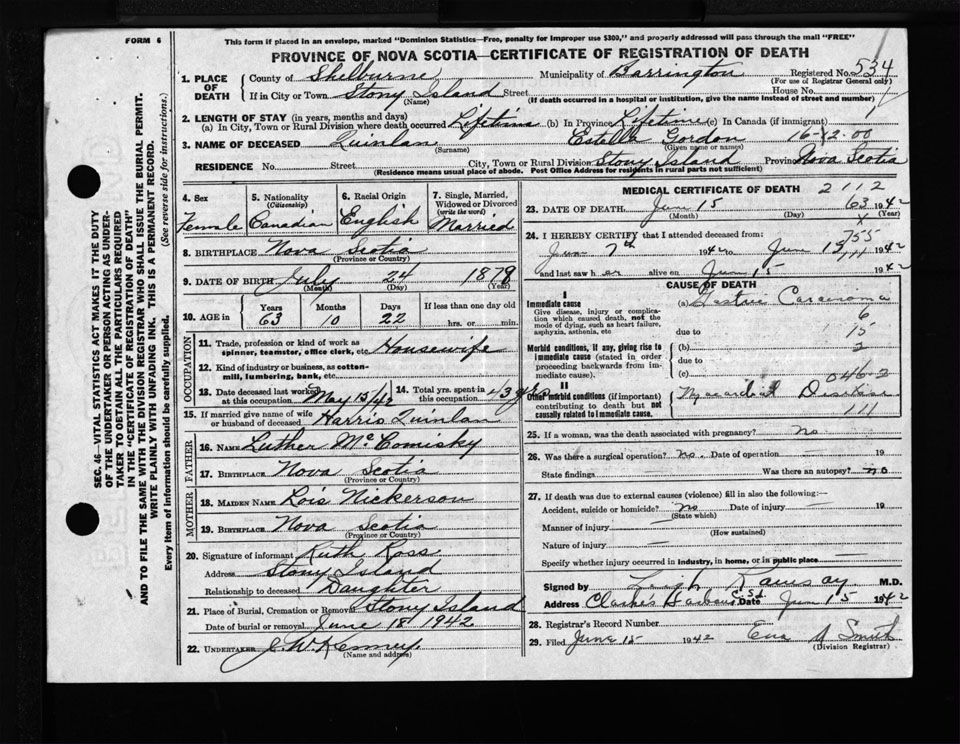 FORM 6
This form if placed in an envelope, marked "Dominion Statistics—Free, penalty for improper use $300," and properly addressed will pass through the mail "FREE"
PROVINCE OF NOVA SCOTIA—CERTIFICATE OF REGISTRATION OF DEATH
SEC. 46—VITAL STATISTICS ACT MAKES IT THE DUTY
OF THE UNDERTAKER OR PERSON ACTING AS UNDER-
TAKER TO OBTAIN ALL THE PARTICULARS REQUIRED
IN THE "CERTIFICATE OF REGISTRATION OF DEATH"
AND TO FILE THE SAME WITH THE DIVISION REGISTRAR WHO SHALL ISSUE THE BURIAL PERMIT.
WRITE PLAINLY WITH UNFADING INK. THIS IS A PERMANENT RECORD.
Every item of information should be carefully supplied. (See reverse side for instructions.)
1. PLACE OF DEATH
County of Shelburne Municipality of Barrington Registered No. 534
(For use of Registrar General only)
If in City or Town Stony Island Street House No.
(Name) (If death occurred in a hospital or institution, give the name instead of street and number)
2. LENGTH OF STAY (in years, months and days)
(a) In City, Town or Rural Division where death occurred Lifetime (b) In Province Lifetime (c) In Canada (if immigrant)
3. NAME OF DECEASED Quinlan Estella Gordon 16-12-00
(Surname) (Given name or names)
RESIDENCE No. Street City, Town or Rural Division Stony Island Province Nova Scotia
(Residence means usual place of abode. Post Office Address for residents in rural parts not sufficient)
4. Sex Female
5. Nationality (Citizenship) Canadian
6. Racial Origin English
7. Single, Married, Widowed or Divorced (write the word) Married
8. BIRTHPLACE Nova Scotia
(Province or Country)
9. DATE OF BIRTH July 24
(Month) (Day) (Year)
10. AGE in Years Months Days If less than one day old
63 10 22 hrs. or min.
OCCUPATION
11. Trade, profession or kind of work as
spinner, teamster, office clerk, etc. Housewife
12. Kind of industry or business, as cotton-
mill, lumbering, bank, etc.
13. Date deceased last worked at this occupation May 15/42
14. Total yrs. spent in this occupation 43 yrs
15. If married give name of wife
or husband of deceased Harris Quinlan
FATHER
16. NAME Luther McComisky
17. BIRTHPLACE Nova Scotia
(Province or Country)
MOTHER
18. MAIDEN NAME Lois Nickerson
19. BIRTHPLACE Nova Scotia
(Province or Country)
20. Signature of informant Ruth Ross
Address Stony Island
Relationship to deceased Daughter
21. Place of Burial, Cremation or Removal Stony Island
Date of burial or removal June 18 1942
22. UNDERTAKER J. W. Kenney
(Name and address)
MEDICAL CERTIFICATE OF DEATH 2112
23. DATE OF DEATH Jun 15 63 1942
(Month) (Day) X
24. I HEREBY CERTIFY that I attended deceased from: 755
Jun 7th 1942 to Jun 15 1942
and last saw her alive on Jun 15 1942
CAUSE OF DEATH
I
Immediate cause
Give disease, injury or complica-
tion which caused death, not the
mode of dying, such as heart failure,
asphyxia, asthenia, etc
(a) Gastric Carcinoma
6
due to 15
Morbid conditions, if any, giving rise to
immediate cause (stated in order
proceeding backwards from im-
mediate cause).
(b) 2
due to
(c) 046-2
II
Other morbid conditions (if important)
contributing to death but not
causally related to immediate cause.
Myocardial
111
25. If a woman, was the death associated with pregnancy? no
26. Was there a surgical operation? no. Date of operation — 19
State findings — Was there an autopsy? no
27. If death was due to external causes (violence) fill in also the following:—
Accident, suicide or homicide? No Date of injury — 19
(State which)
Manner of injury —
(How sustained)
Nature of injury —
Specify whether injury occurred in industry, in home, or in public place —
Signed by Leigh Ramsay M.D.
Address Clarke's Harbour Date Jun 15 1942
28. Registrar's Record Number
29. Filed June 15 1942 Smith
(Division Registrar)